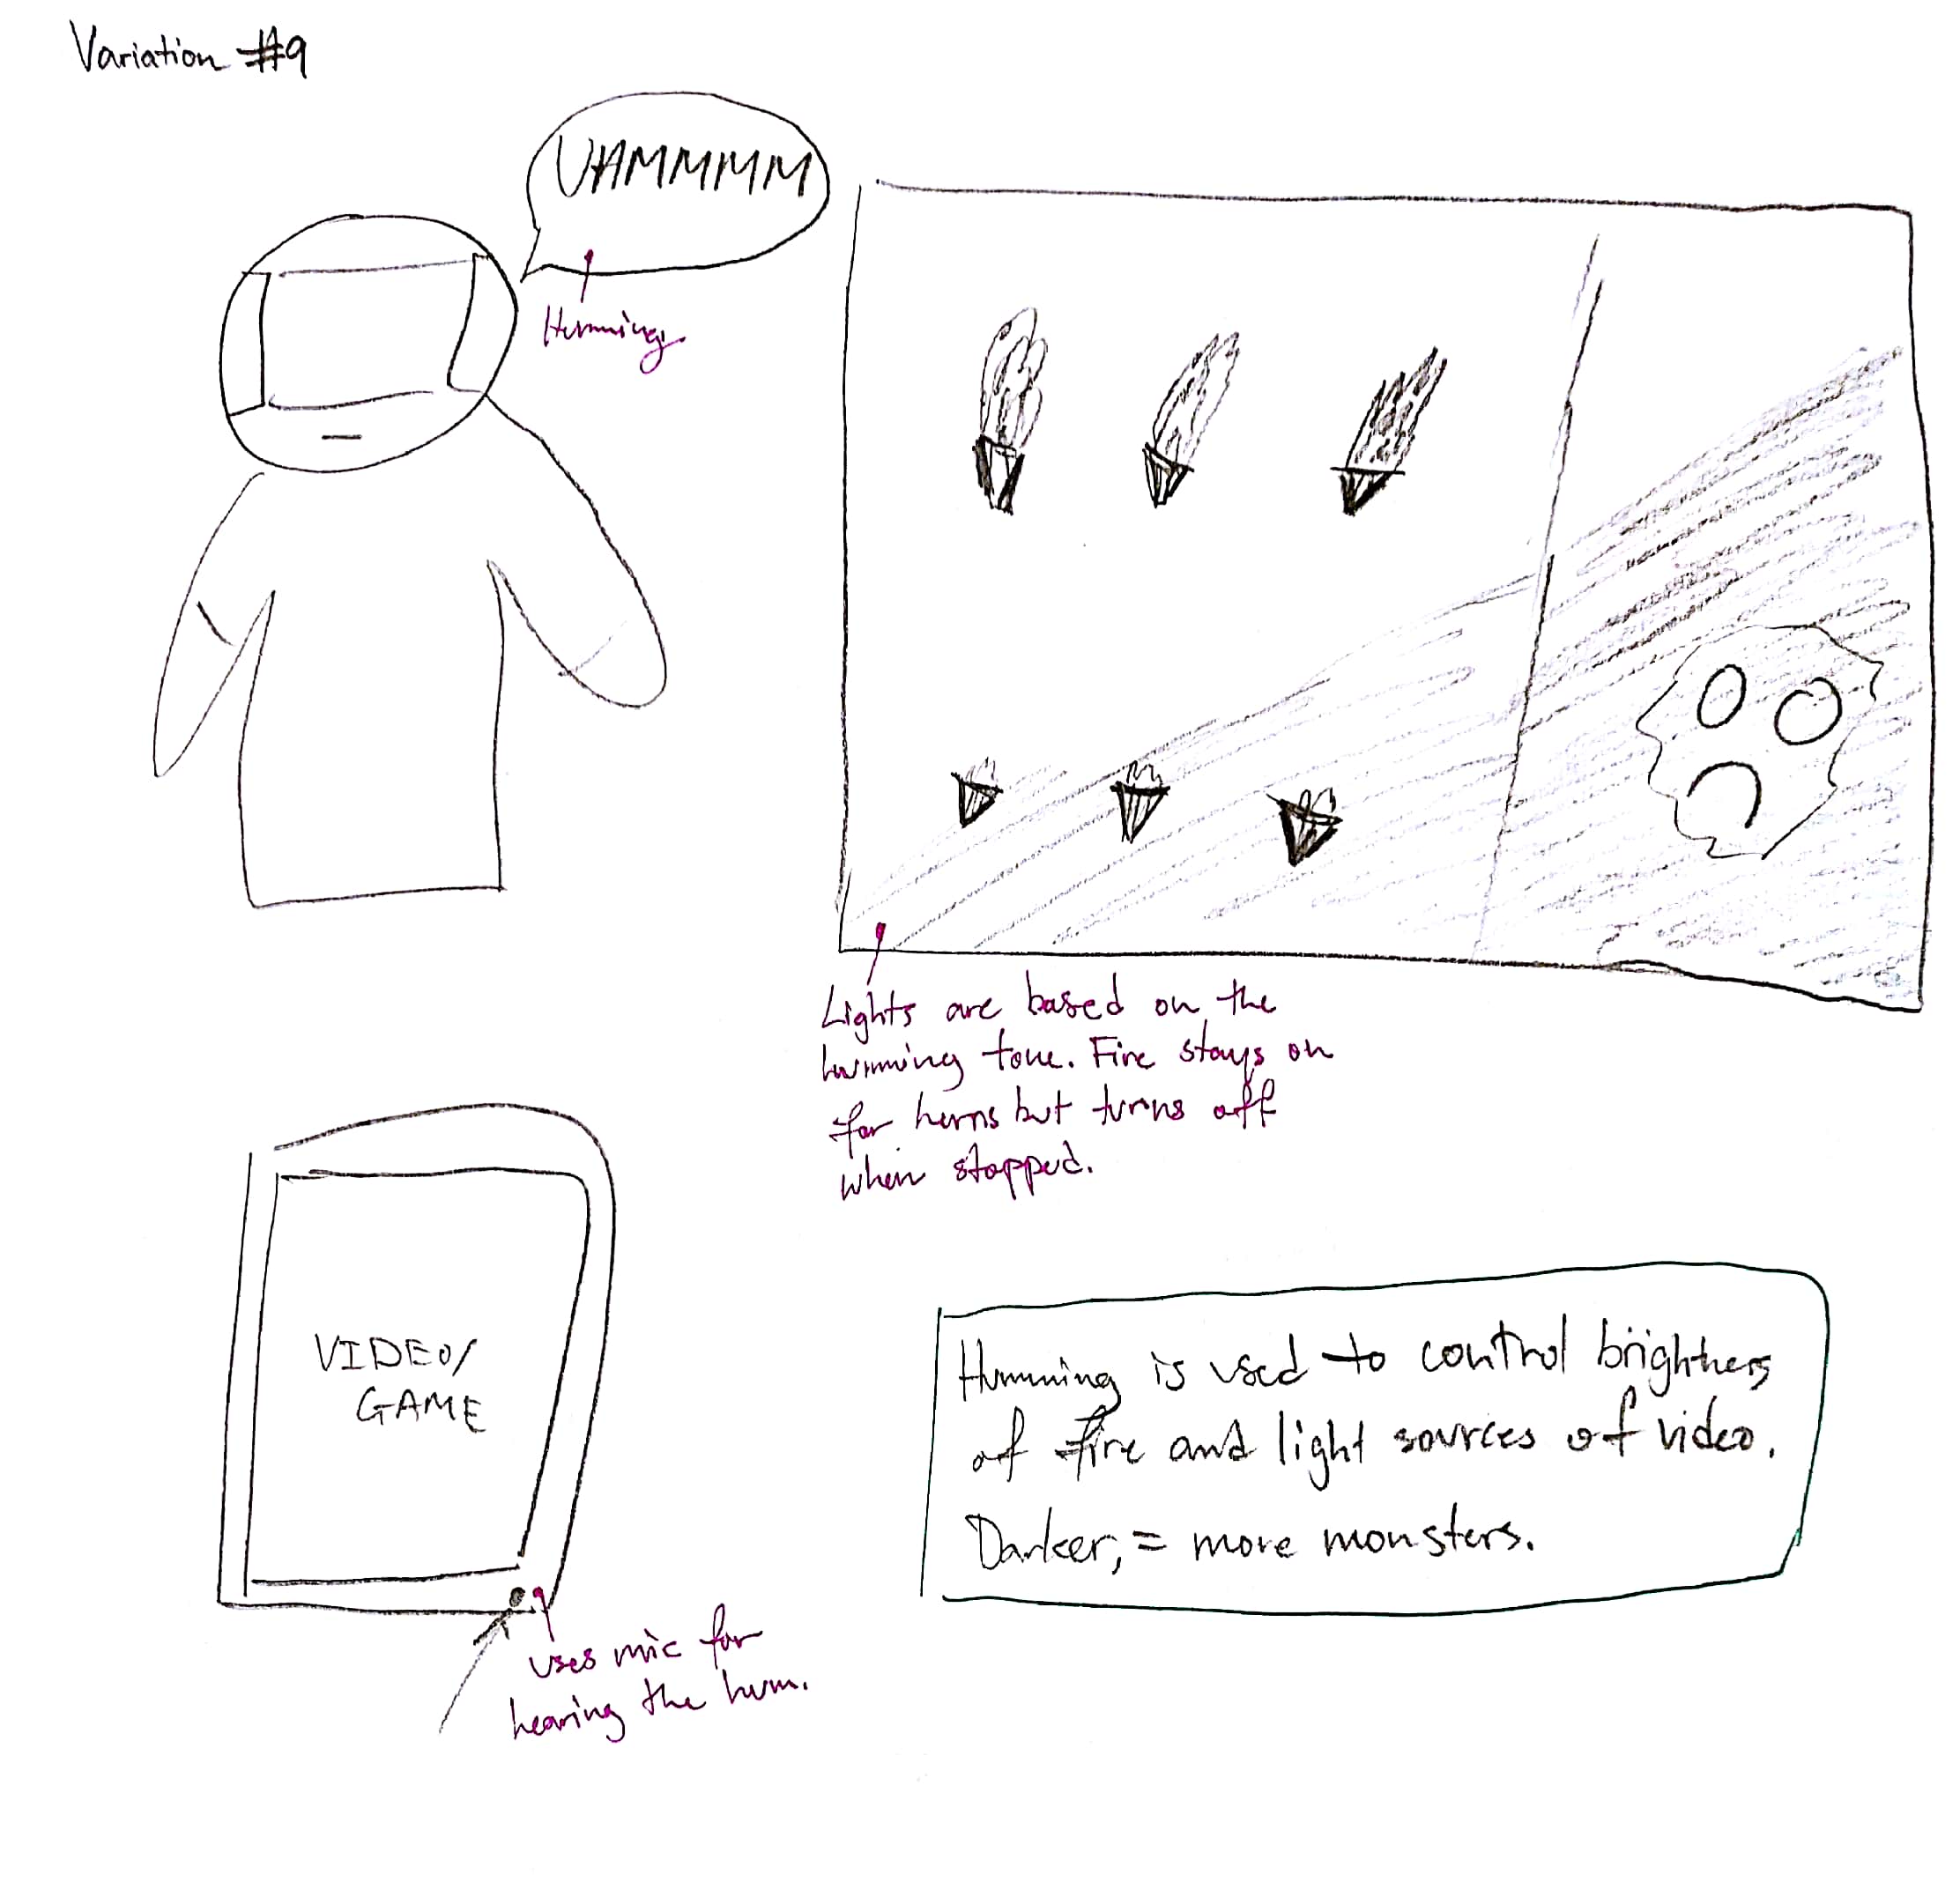 Variation #9
UHMMMMM
Humming
Lights are based on the
humming tone. Fire stays on
for hums but turns off
when stopped.
VIDEO/
GAME
uses mic for
hearing the hum.
Humming is used to control brightness
of fire and light sources of video.
Darker, = more monsters.